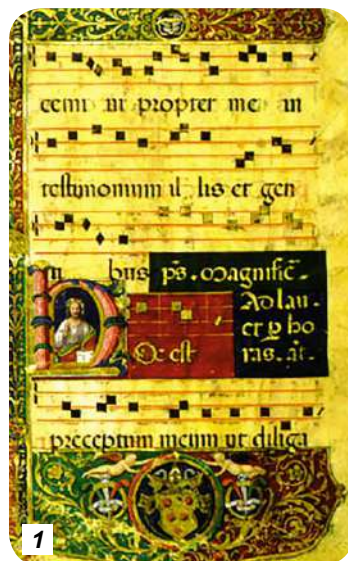 propter me in
testimonium il lis et gen
ti bus ps. Magnific̄.
Ad lau-
et ꝑ ho
HOc est ras. añ.
preceptum meum ut diliga
1